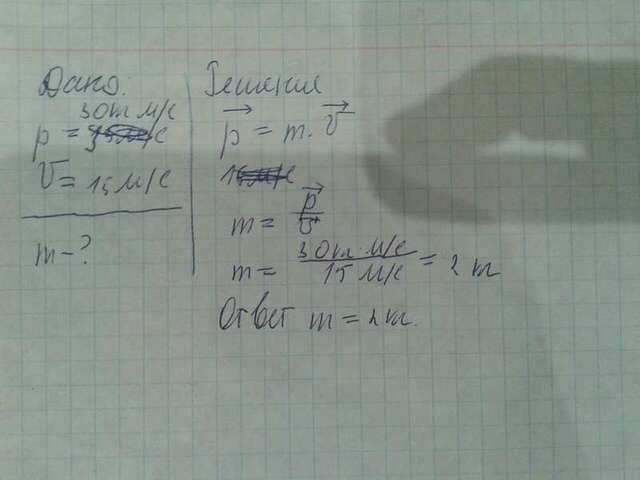 Дано:
30кг м/с
p =
V = 15 м/с
m - ?
Решение
p = m · V
m = p/V
m = 30кг м/с / 15 м/с = 2 кг
Ответ m = 2 кг.